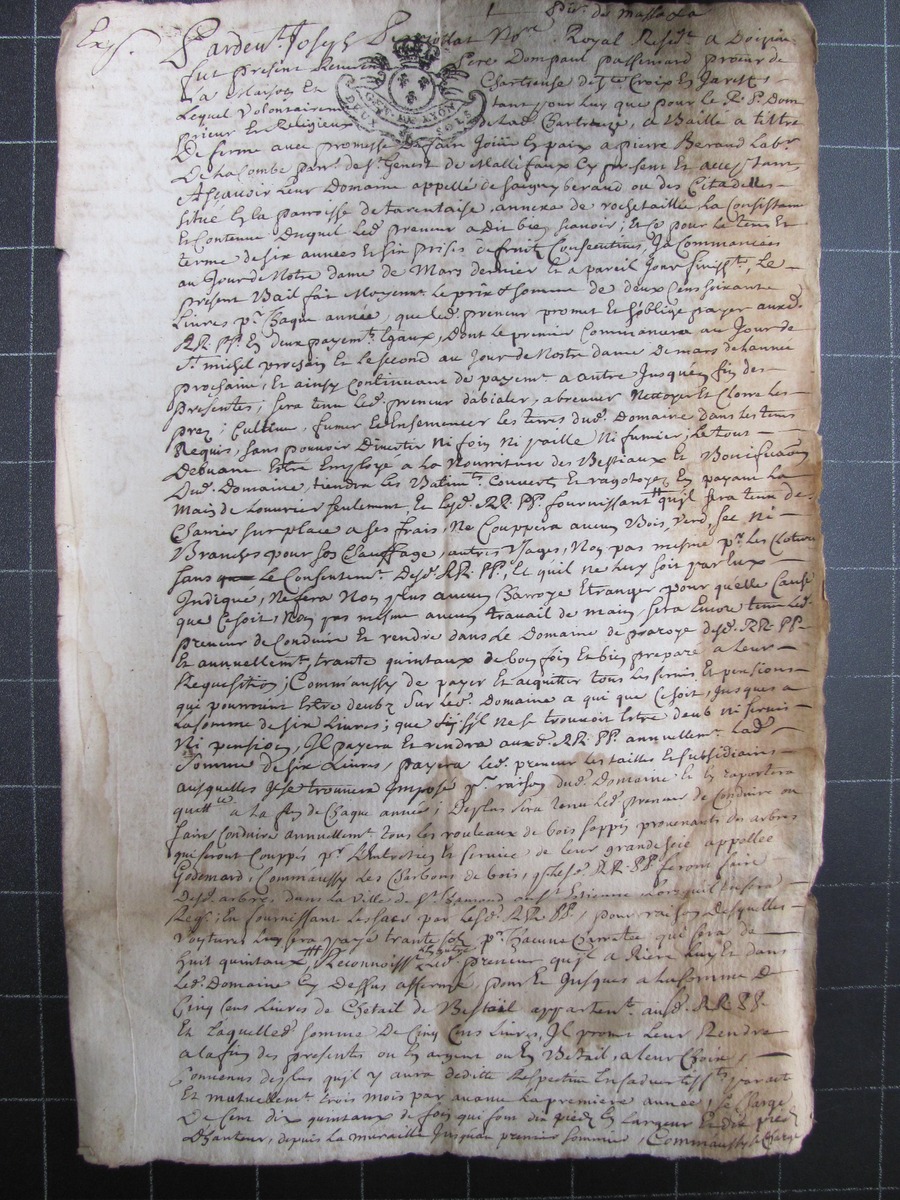 Pardevt. Joseph nore. Royal Residt. a Doizieu
fut present Reverend Pere Dompaul passinard procur de
la Maison Et Chartreuse de Ste Croix En Jarests
GEN. DE LYON
DEUX SOLS
Lequel Volontairement tant pour luy que pour le R. P. Dom
prieur Et Religieux de lad. Chartreuze, a Baillé a tittre
De ferme avec promesse de faire Joüir En paix a pierre Beraud Labr.
De La Combe parr. de St. Genest de Mallifaux Cy present Et acceptant
Ascavoir Leur Domaine appellé de Beraud ou des Citadelles
Situé En la parroisse de tarentaise, annexe de rochetaillée La Consistance
Et Contenue Duquel Led. preneur a dit bien scavoir; Et Ce pour le tems Et
terme de six années Et six prises de fruits Consecutives, Ja Commancées
au Jour de Notre dame de Mars dernier Et a pareil Jour finisst. Le
present Bail fait Moyent. Le prix & somme de deux Cens soixante
Livres pr. Chaque année, que led. preneur promet Et s'oblige payer auxd.
RR. PP. En deux payemts. Egaux, Dont le premier Commancera au Jour de
St. michel prochain Et le second au Jour de Nostre dame De mars de L'année
prochaine, Et ainsy Continuant de payemt. a autre Jusques En fin des
presentes; sera tenu Led. preneur d'abialer, abreuver Nettoyer Et Clorre les
prez; Cultiver, fumer Et Ensemencer les terres dud. Domaine dans les tems
Requis, sans pouvoir Divertir Ni foin Ni paille Ni fumier; Le tout
Debvant Estre Employé a La Nourriture des Bestiaux Et Bonification
Dud. Domaine, tiendra les Batimts. Couverts Et ragotoyez En payant La
Main de Louvrier seulement, Et Lesd. RR. PP. fournissant qu'il sera tenu de
Charier sur place a ses frais, Ne Couppera aucun Bois, Verd, sec, ni
Branches pour son Chauffage, autres Usages, Non pas mesme pr. les Clotures
sans Le Consentemt. Desd. RR. PP., Et qu'il ne Luy soit par Eux
Indiqué, Ne fera Non plus aucun Charroye Etranger pour quelle Cause
que Ce soit, Non pas mesme aucun travail de main, sera Encore tenu Led.
preneur de Conduire Et rendre dans Le Domaine de desd. RR. PP.
Et annuellemt. trante quintaux de bon foin Et bien preparé a leur
Requesition; Comm'aussy de payer Et acquitter tous les servis Et pensions
qui pourroient Estre deubz Sur Led. Domaine a qui que Ce soit, Jusques a
La somme de six Livres; que s'il Ne se trouvoit Estre deub ni servis
Ni pension, Il payera Et rendra auxd. RR. PP. annuellemt. Lad.
Somme de six Livres, payera Led. preneur les tailles Et subsidiaires
ausquelles Il se trouvera Imposé pr. raison dud. Domaine Et En raportera
quittce. a la fin de Chaque année; Desplus sera tenu Led. preneur de Conduire ou
faire Conduire annuellemt. tous les rouleaux de bois sappin provenants des arbres
qui seront Couppés pr. L'Entretien Et service de leur grande scie appellée
Godemard; Comm'aussy Les Charbons de bois, q. Lesd. RR. PP. feront faire
Desd. arbres, dans la Ville de St. Chamond ou St. Etienne Lors qu'il En sera
Reqs; En fournissant les sacs par Lesd. RR. PP., pour raison Desquelles
Voytures Luy sera payé trante sols pr. Chacune Charretée qui sera de
huit quintaux, Reconnoisst. Led. preneur qu'il a Riere Luy Et dans
Led. Domaine Cy Dessus affermé, pour Et Jusques a La somme De
Cinq Cens Livres de Chetail de Bestail appartent. ausd. RR. PP.
Et Laquelled. somme De Cinq Cens Livres, Il promet Leur Rendre
a la fin des presentes ou En argent ou En Betail, a leur Choix,
Convenus desplus qu'il y aura deditte Respective En s'advertisst.
Et mutuellemt. trois mois par avance La premiere année, se Charge
De Cent dix quintaux de foin qui font dix piedz En Largeur Et dix piedz
D'hauteur, depuis La muraille Jusqu'au premier sommier, Comm'aussy se Charge